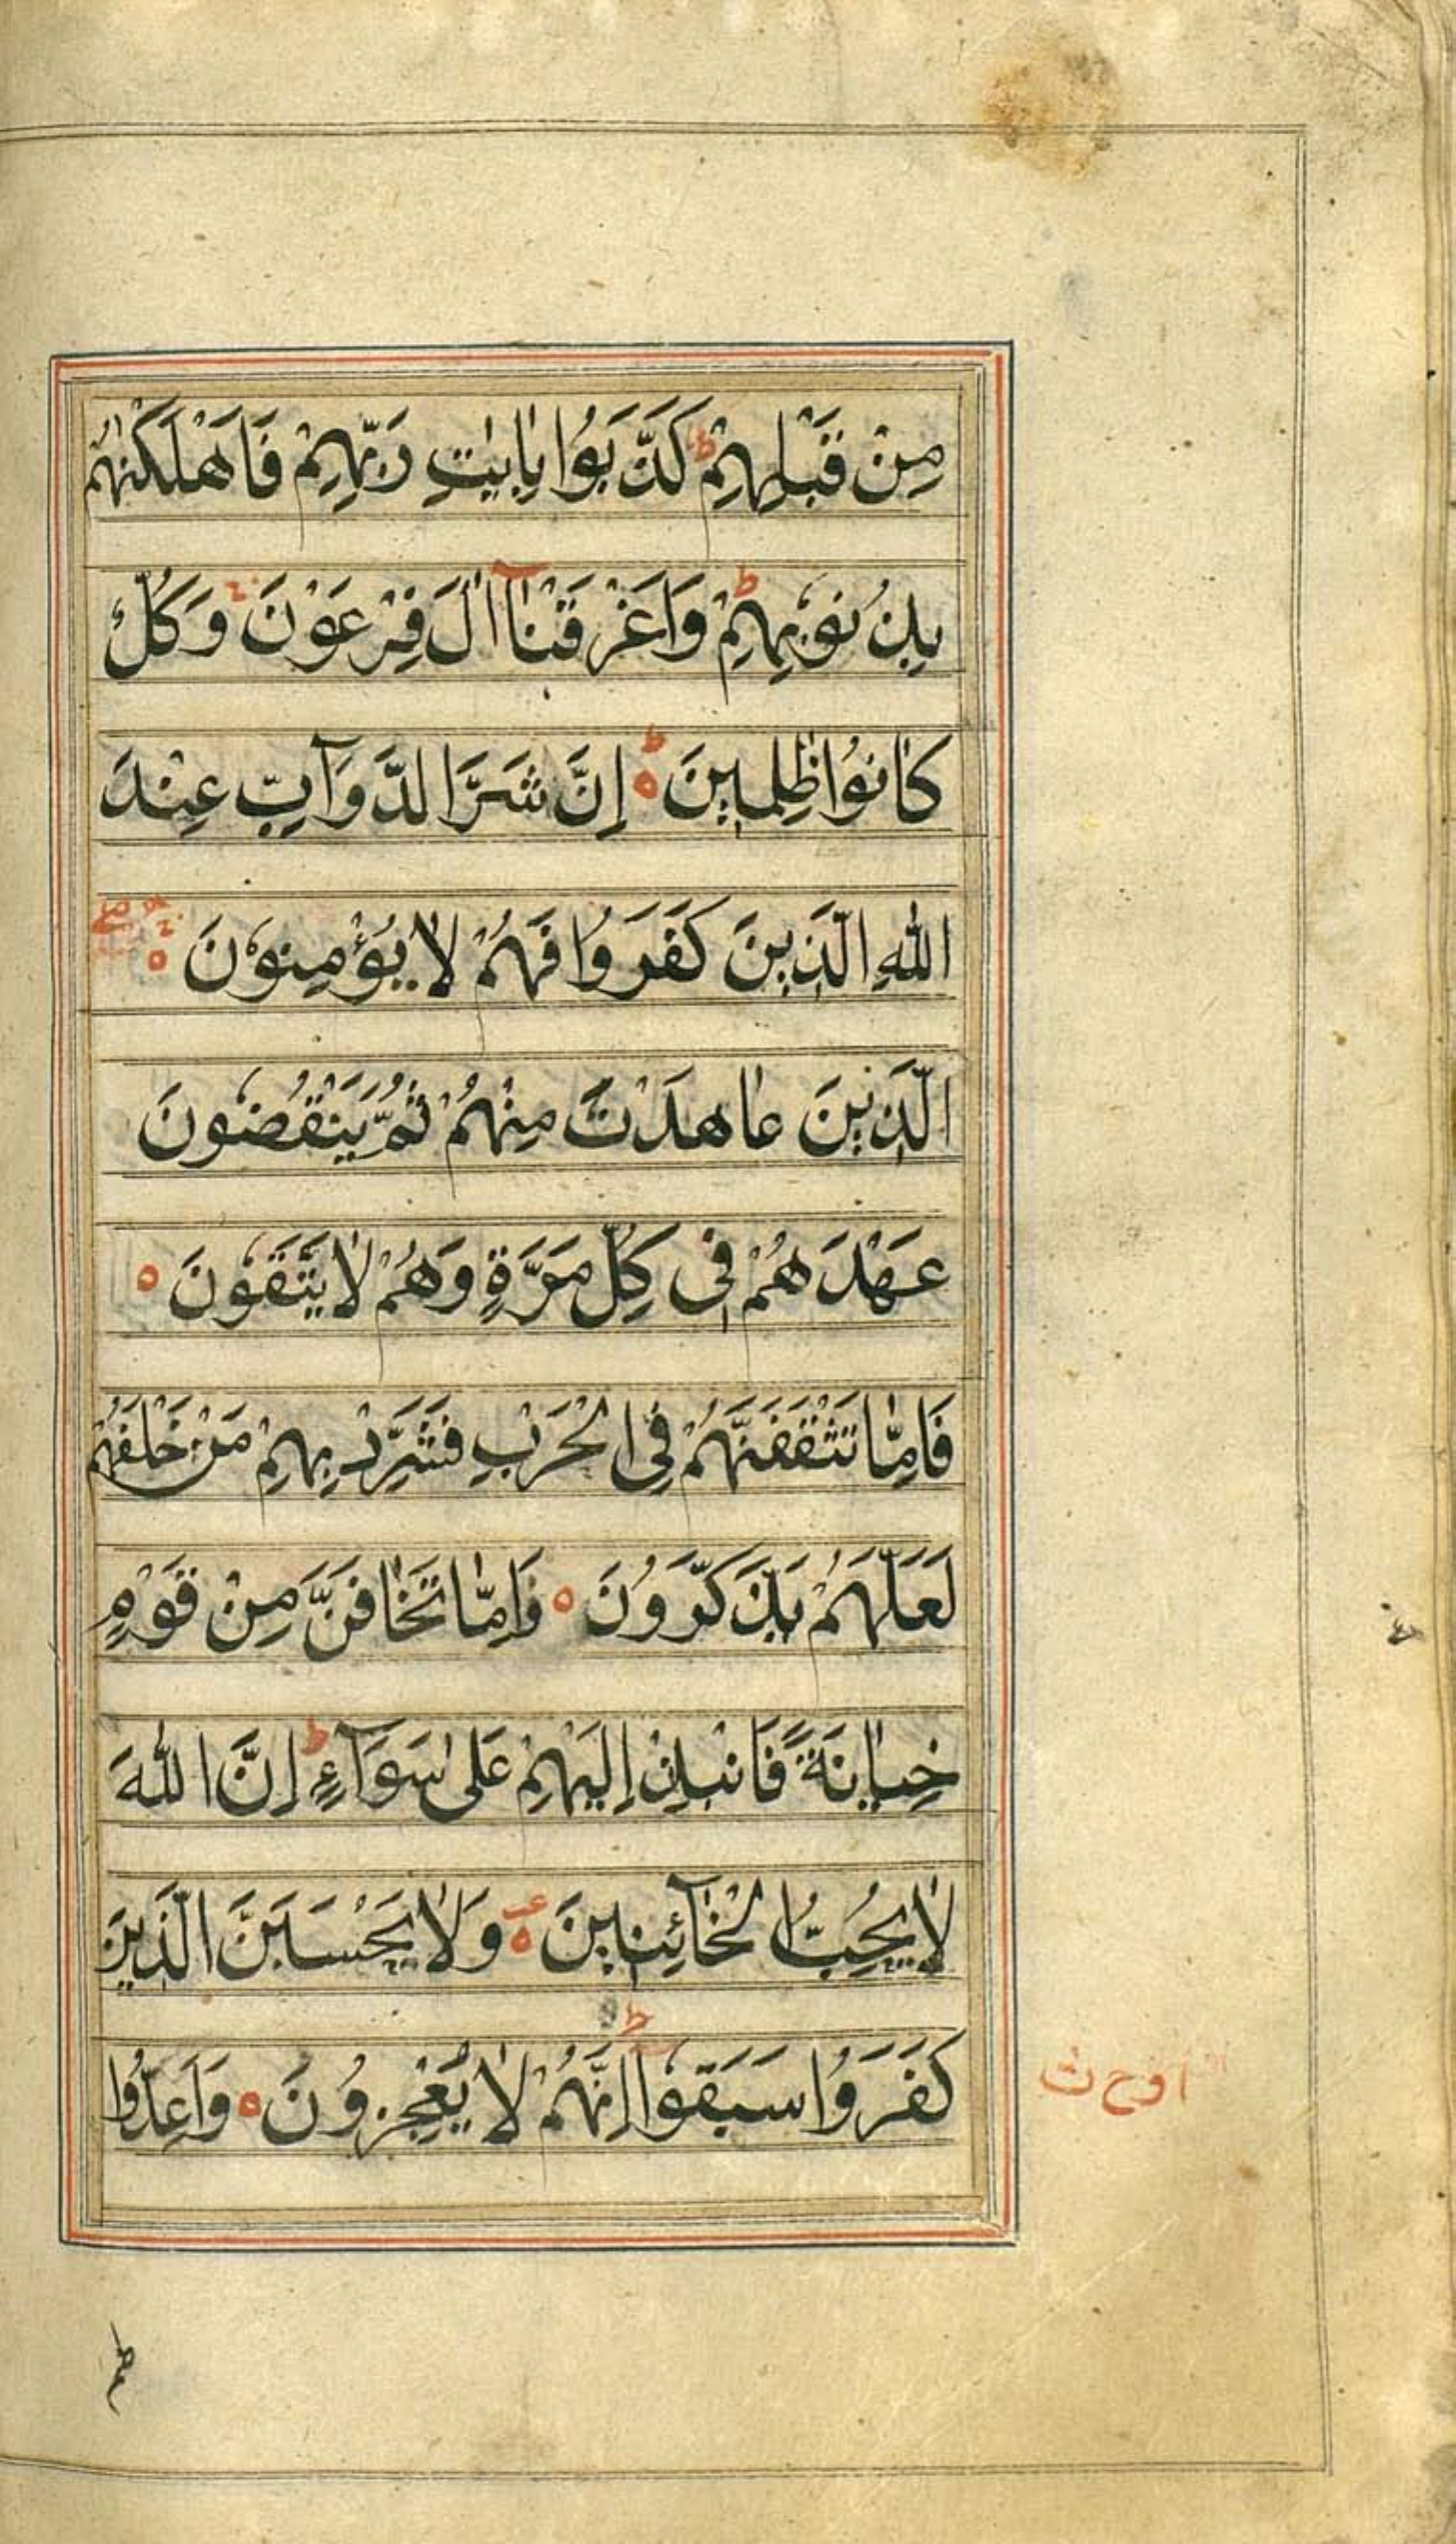 مِنْ قَبْلِهِمْ ؕ كَذَّبُوْا بِاٰيٰتِ رَبِّهِمْ فَاَهْلَكْنٰهُمْ
بِذُنُوْبِهِمْ ؕ وَاَغْرَقْنَاۤ اٰلَ فِرْعَوْنَ ۚ وَكُلٌّ
كَانُوْا ظٰلِمِيْنَ ۵ؕ اِنَّ شَرَّ الدَّوَآبِّ عِنْدَ
اللّٰهِ الَّذِيْنَ كَفَرُوْا فَهُمْ لَا يُؤْمِنُوْنَ ۵ۚۖ
اَلَّذِيْنَ عَاهَدْتَّ مِنْهُمْ ثُمَّ يَنْقُضُوْنَ
عَهْدَهُمْ فِيْ كُلِّ مَرَّةٍ وَّهُمْ لَا يَتَّقُوْنَ ۵
فَاِمَّا تَثْقَفَنَّهُمْ فِي الْحَرْبِ فَشَرِّدْ بِهِمْ مَنْ خَلْفَهُمْ
لَعَلَّهُمْ يَذَّكَّرُوْنَ ۵ وَاِمَّا تَخَافَنَّ مِنْ قَوْمٍ
خِيَانَةً فَانْبِذْ اِلَيْهِمْ عَلٰى سَوَآءٍ ؕ اِنَّ اللّٰهَ
لَا يُحِبُّ الْخَآئِنِيْنَ ۵ۧ وَلَا يَحْسَبَنَّ الَّذِيْنَ
كَفَرُوْا سَبَقُوْا ؕ اِنَّهُمْ لَا يُعْجِزُوْنَ ۵ وَاَعِدُّوْا